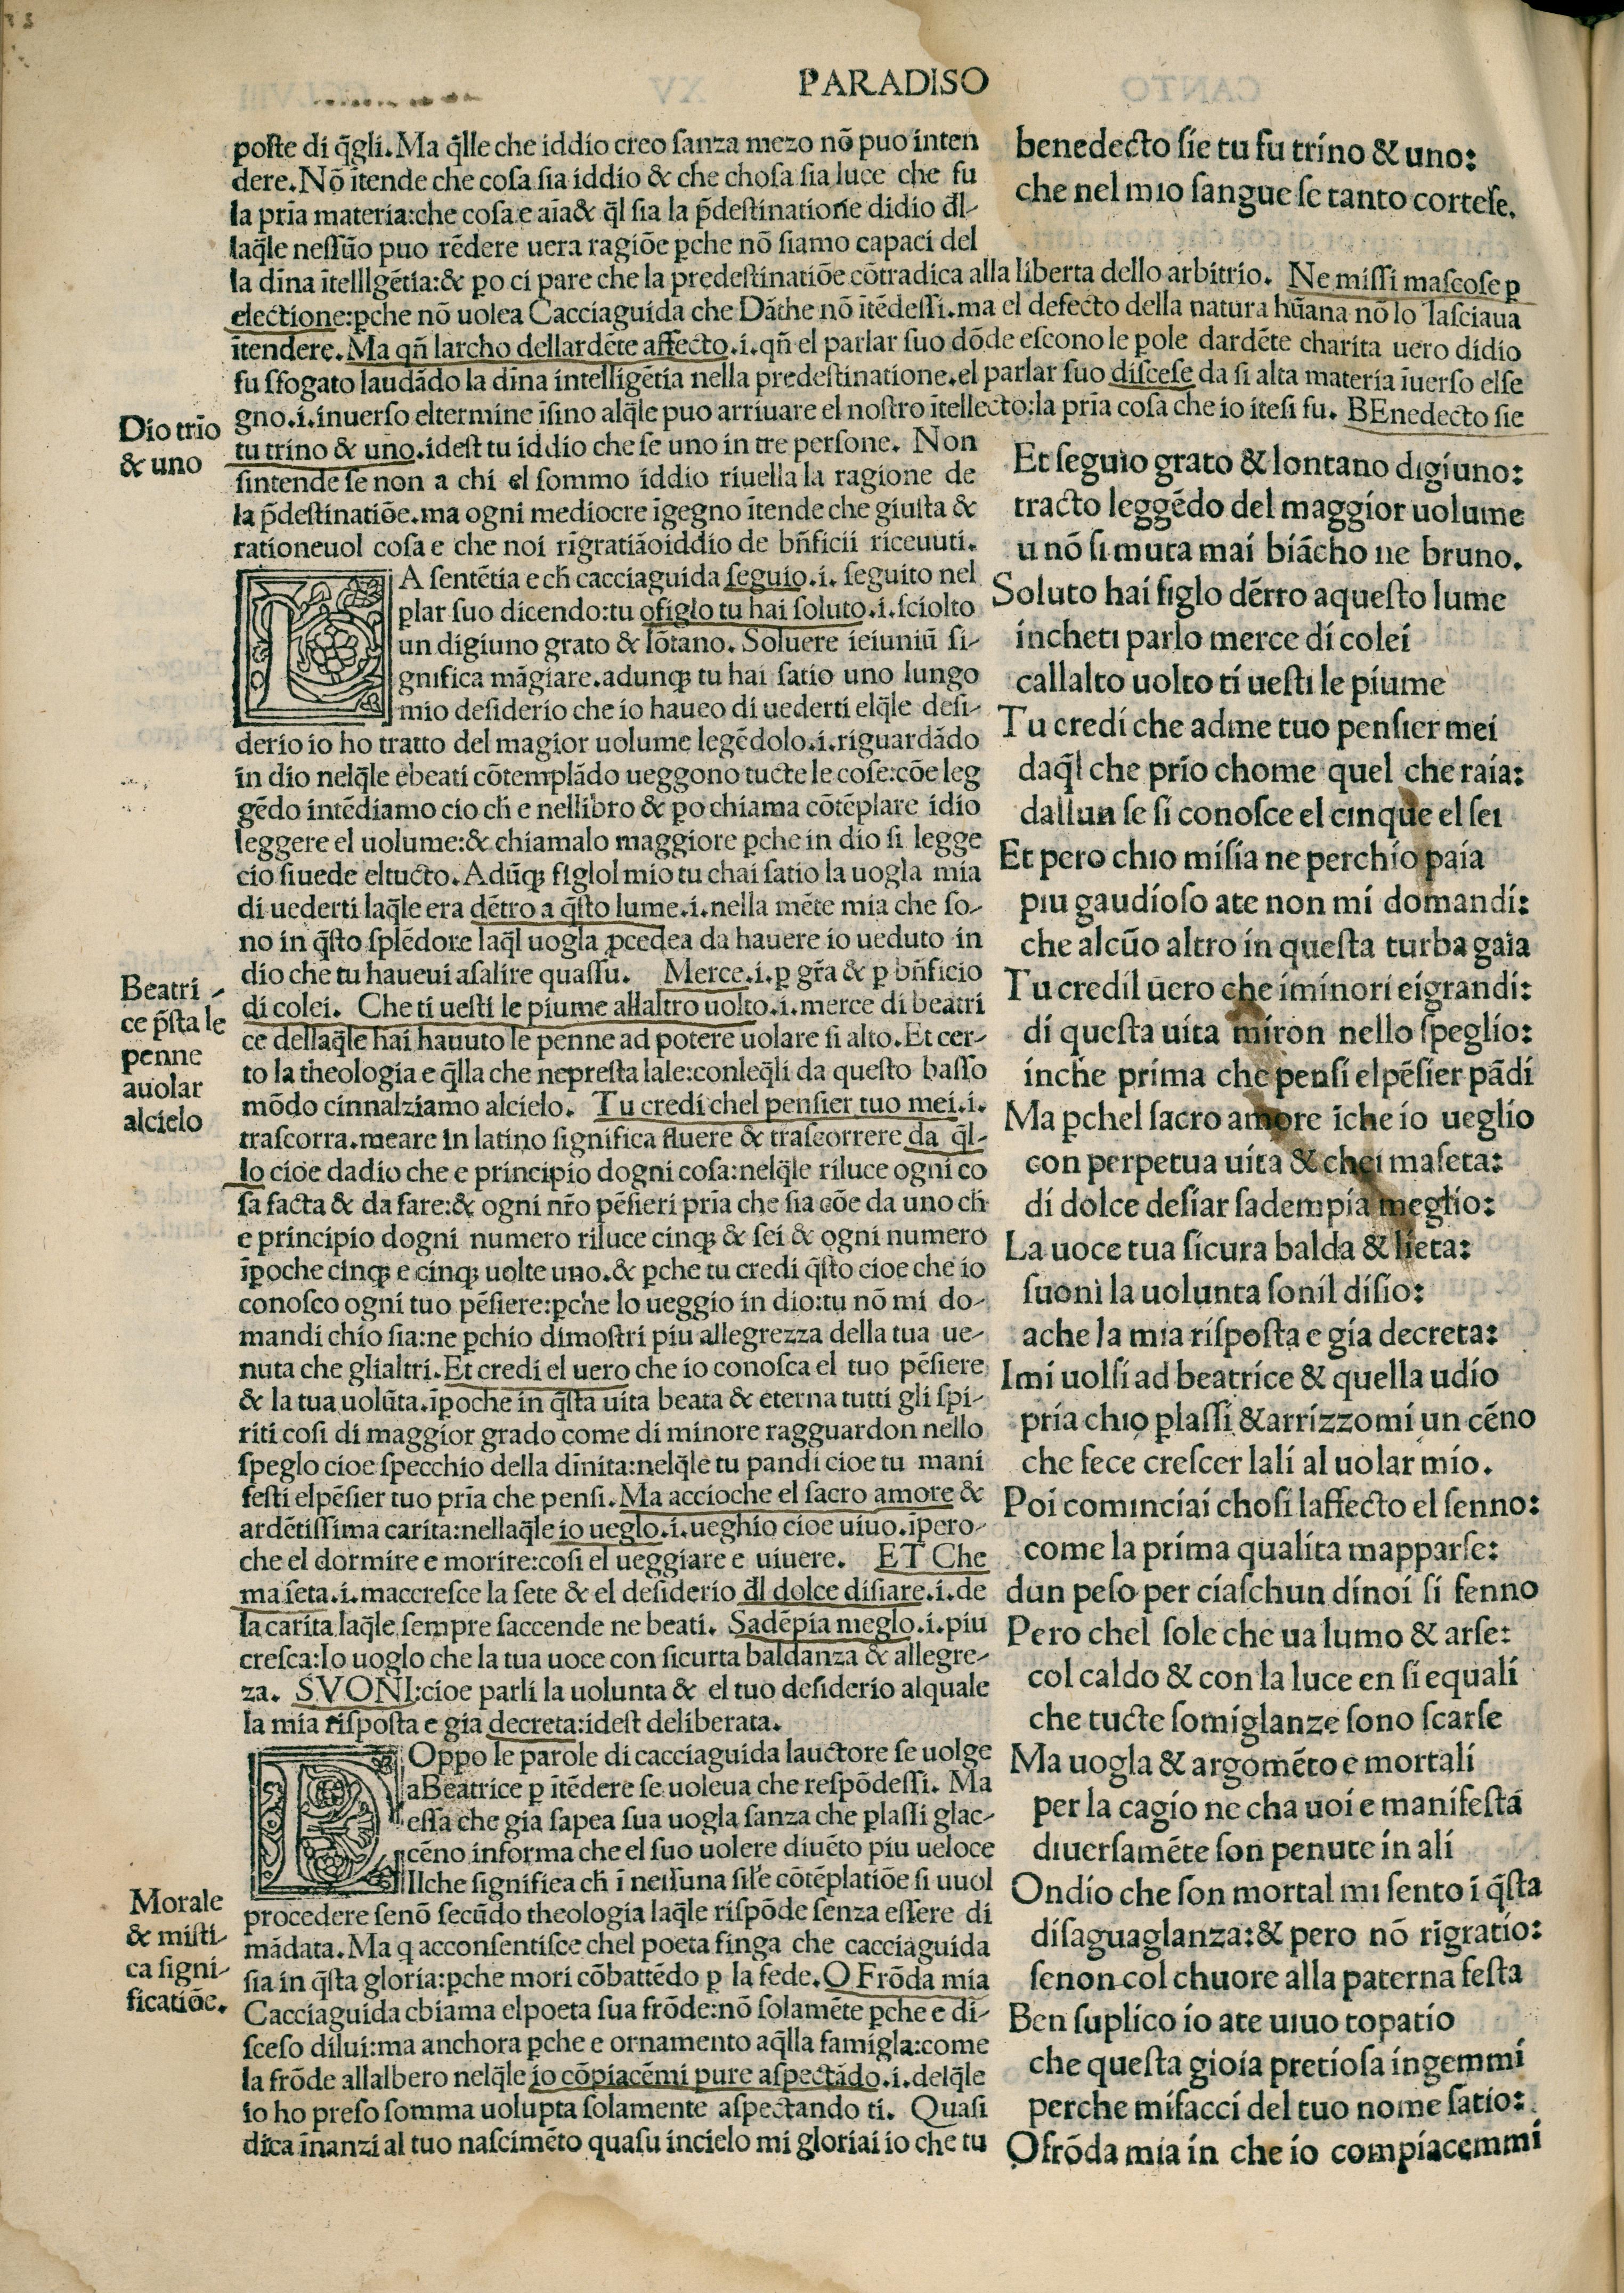 PARADISO
poste di q̄gli. Ma q̄lle che iddio creo sanza mezo nō puo inten
dere. Nō ītende che cosa sia iddio & che chosa sia luce che fu
la prīa materia:che cosa e aīa& q̄l sia la p̄destinatione didio dl̄-
laq̄le nessūo puo rēdere uera ragiōe ꝑche nō siamo capaci del
la dīna ītelllgētia:& ꝑo ci pare che la predestinatiōe cōtradica alla liberta dello arbitrio. Ne missi mascose ꝑ
electione:ꝑche nō uolea Cacciaguida che Dāthe nō ītēdessi.ma el defecto della natura hūana nō lo lasciaua
ītendere. Ma qn̄ larcho dellardēte affecto.i.qn̄ el parlar suo dōde escono le ꝑole dardēte charita uero didio
fu sfogato laudādo la dīna intelligētia nella predestinatione.el parlar suo discese da si alta materia īuerso else
gno.i.inuerso eltermine īsino alq̄le puo arriuare el nostro ītellecto:la prīa cosa che io itesi fu. BEnedecto sie
tu trino & uno.idest tu iddio che se uno in tre persone. Non
sintende se non a chi el sommo iddio riuella la ragione de
la p̄destinatiōe.ma ogni mediocre īgegno ītende che giusta &
rationeuol cosa e che noi rīgratiāoiddio de bn̄ficii riceuuti.
LA sentētia e ch̄ cacciaguida seguio.i. seguito nel
ꝑlar suo dicendo:tu ofiglo tu hai soluto.i.sciolto
un digiuno grato & lōtano. Soluere ieiuniū si-
gnifica māgiare.adunqꝫ tu hai satio uno lungo
mio desiderio che io haueo di uederti elq̄le desi-
derio io ho tratto del magior uolume legēdolo.i.riguardādo
in dio nelq̄le ebeati cōtemplādo ueggono tucte le cose:cōe leg
gēdo intēdiamo cio ch̄ e nellibro & ꝑo chiama cōtēplare idio
leggere el uolume:& chiamalo maggiore ꝑche in dio si legge
cio siuede eltucto. Adūqꝫ figlol mio tu chai satio la uogla mia
di uederti laq̄le era dētro a q̄sto lume.i.nella mēte mia che so-
no in q̄sto splēdore laq̄l uogla ꝓcedea da hauere io ueduto in
dio che tu haueui asalire quassu. Merce.i.ꝑ gr̄a & ꝑ bn̄ficio
di colei. Che ti uesti le piume allaltro uolto.i.merce di beatri
ce dellaq̄le hai hauuto le penne ad potere uolare si alto. Et cer-
to la theologia e q̄lla che nepresta lale:conleq̄li da questo basso
mōdo cinnalziamo alcielo. Tu credi chel pensier tuo mei.i.
trascorra.meare in latino significa fluere & trascorrere da q̄l-
lo cioe dadio che e principio dogni cosa:nelq̄le riluce ogni co
sa facta & da fare:& ogni nr̄o pēsieri prīa che sia cōe da uno ch̄
e principio dogni numero riluce cinqꝫ & sei & ogni numero
īꝑoche cinqꝫ e cinqꝫ uolte uno.& ꝑche tu credi q̄sto cioe che io
conosco ogni tuo pēsiere:ꝑche lo ueggio in dio:tu nō mi do-
mandi chio sia:ne ꝑchio dimostri piu allegrezza della tua ue-
nuta che glialtri. Et credi el uero che io conosca el tuo pēsiere
& la tua uolūta.īꝑoche in q̄sta uita beata & eterna tutti gli spi-
riti cosi di maggior grado come di minore ragguardon nello
speglo cioe specchio della dīnita:nelq̄le tu pandi cioe tu mani
festi elpēsier tuo prīa che pensi. Ma accioche el sacro amore &
ardētissima carita:nellaq̄le io ueglo.i.ueghio cioe uiuo.īpero-
che el dormire e morire:cosi el ueggiare e uiuere. ET Che
maseta.i.maccresce la sete & el desiderio dl̄ dolce disiare.i.de
la carita laq̄le sempre saccende ne beati. Sadēpia meglo.i.piu
cresca:Io uoglo che la tua uoce con sicurta baldanza & allegre-
za. SVONI:cioe parli la uolunta & el tuo desiderio alquale
la mia risposta e gia decreta:idest deliberata.
DOppo le parole di cacciaguida lauctore se uolge
aBeatrice ꝑ ītēdere se uoleua che respōdessi. Ma
essa che gia sapea sua uogla sanza che ꝑlassi glac-
cēno informa che el suo uolere diuēto piu ueloce
Ilche significa ch̄ ī nessuna sil̄e cōtēplatiōe si uuol
procedere senō secūdo theologia laq̄le rispōde senza essere di
mādata. Ma q acconsentisce chel poeta finga che cacciaguida
sia in q̄sta gloria:ꝑche mori cōbattēdo ꝑ la fede. O Frōda mia
Cacciaguida chiama elpoeta sua frōde:nō solamēte ꝑche e di-
sceso dilui:ma anchora ꝑche e ornamento aq̄lla famigla:come
la frōde allalbero nelq̄le io cōpiacēmi pure aspectādo.i.delq̄le
io ho preso somma uolupta solamente aspectando ti. Quasi
dica īnanzi al tuo nascimēto quasu incielo mi gloriai io che tu
Dio trīo
& uno
Beatri-
ce p̄sta le
penne
auolar
alcielo
Morale
& misti-
ca signi-
ficatiōe.
benedecto sie tu fu trino & uno:
che nel mio sangue se tanto cortese.
Et seguio grato & lontano digiuno:
tracto leggēdo del maggior uolume
u nō si muta mai biācho ne bruno.
Soluto hai figlo dētro aquesto lume
incheti parlo merce di colei
callalto uolto ti uesti le piume
Tu credi che adme tuo pensier mei
daq̄l che prīo chome quel che raia:
dallun se si conosce el cinque el sei
Et pero chio misia ne perchio paia
piu gaudioso ate non mi domandi:
che alcūo altro in questa turba gaia
Tu credil uero che iminori eigrandi:
di questa uita miron nello speglio:
inche prima che pensi elpēsier pādi
Ma ꝑchel sacro amore īche io ueglio
con perpetua uita & chei maseta:
di dolce desiar sadempia meglio:
La uoce tua sicura balda & lieta:
suoni la uolunta sonil disio:
ache la mia risposta e gia decreta:
Imi uolsi ad beatrice & quella udio
pria chio ꝑlassi &arrizzomi un cēno
che fece crescer lali al uolar mio.
Poi cominciai chosi laffecto el senno:
come la prima qualita mapparse:
dun peso per ciaschun dinoi si fenno
Pero chel sole che ua lumo & arse:
col caldo & con la luce en si equali
che tucte somiglanze sono scarse
Ma uogla & argomēto e mortali
per la cagio ne cha uoi e manifesta
diuersamēte son penute in ali
Ondio che son mortal mi sento ī q̄sta
disaguaglanza:& pero nō rīgratio:
senon col chuore alla paterna festa
Ben suplico io ate uiuo topatio
che questa gioia pretiosa ingemmi
perche mifacci del tuo nome satio:
Ofrōda mia in che io compiacemmi